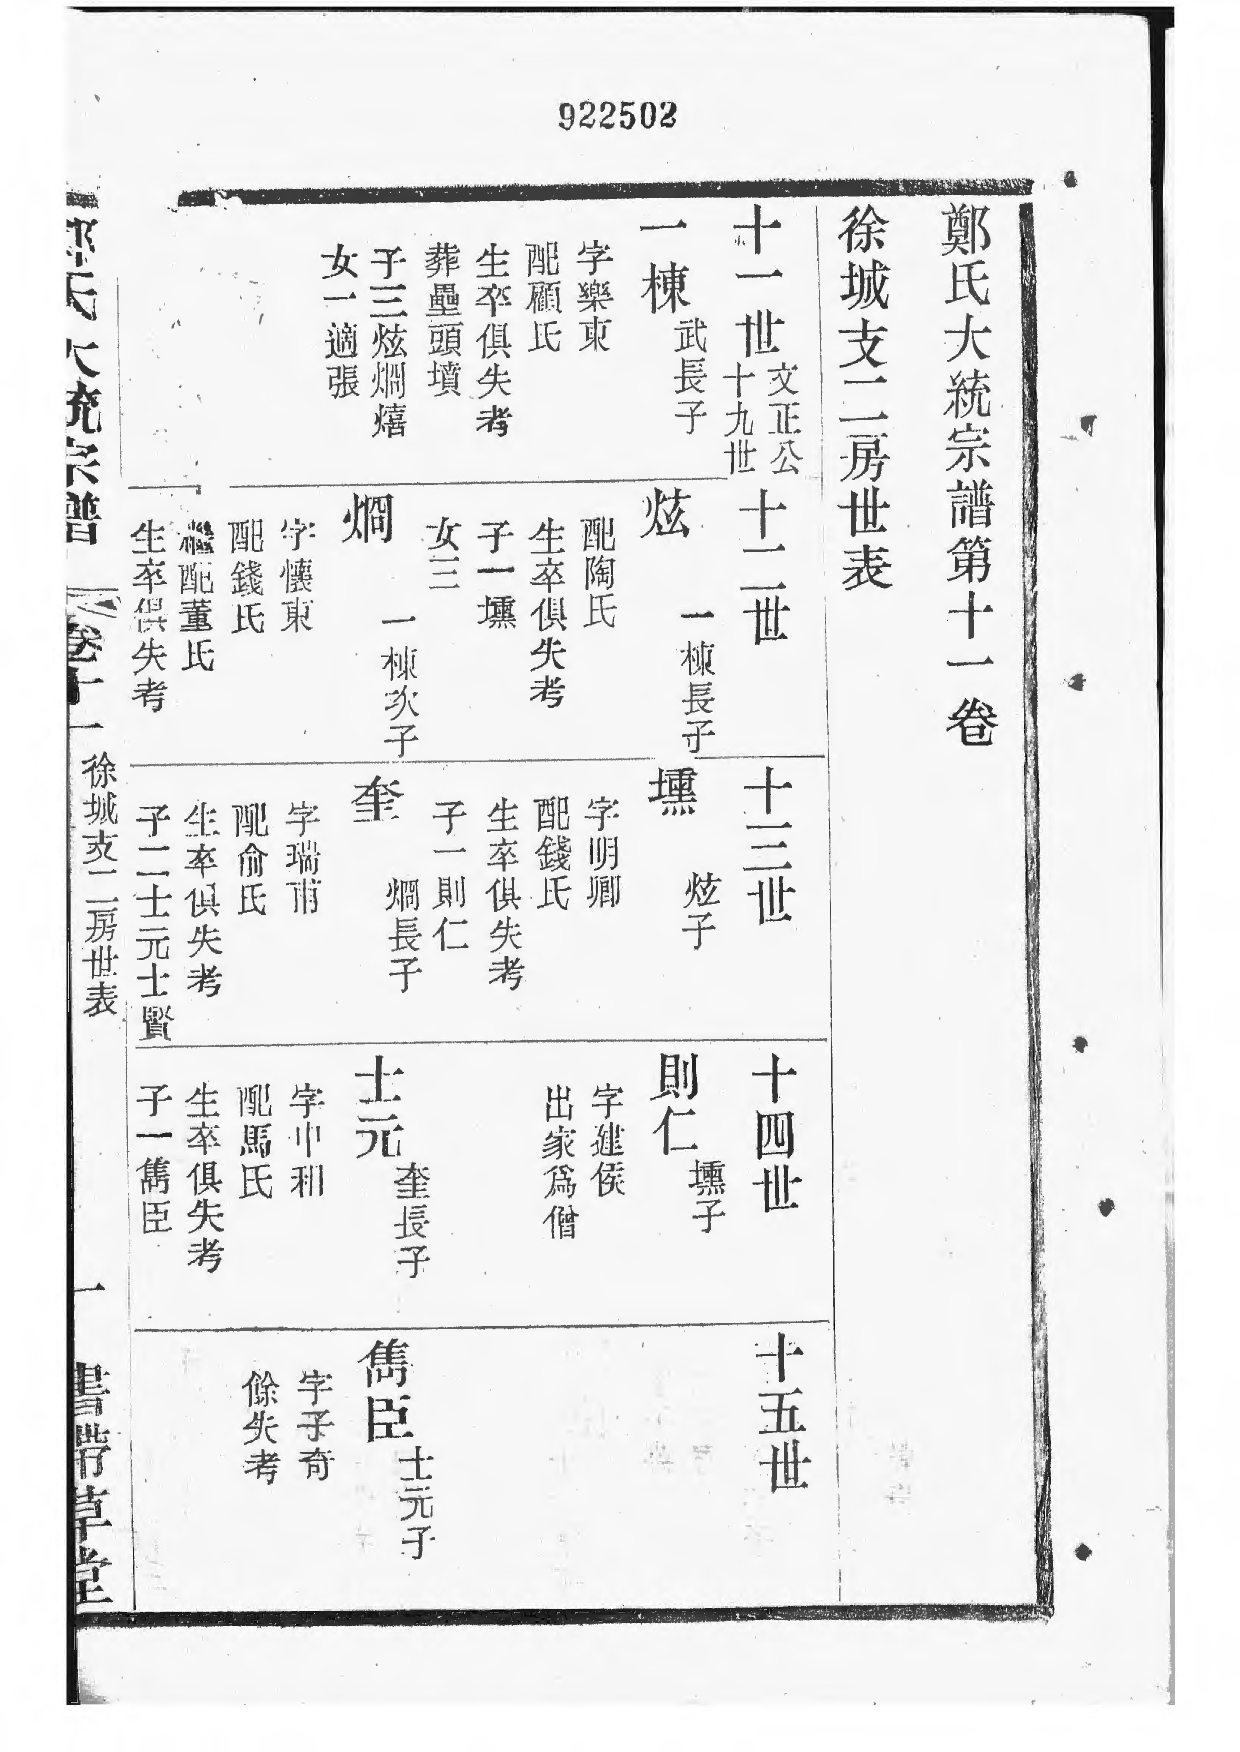 922502
鄭氏大統宗譜第十一卷
徐城支二房世表
十一世
文正公
十九世
一棟
武長子
字樂東
配顧氏
生卒俱失考
葬壘頭墳
子三炫燗熺
女一適張
十二世
炫
一棟長子
配陶氏
生卒俱失考
子一壎
女三
燗
一棟次子
字懷東
配錢氏
繼配董氏
生卒俱失考
十三世
壎
炫子
字明卿
配錢氏
生卒俱失考
子一則仁
奎
燗長子
字瑞甫
配俞氏
生卒俱失考
子二士元士賢
十四世
則仁
壎子
字建侯
出家爲僧
士元
奎長子
字中和
配馬氏
生卒俱失考
子一雋臣
十五世
雋臣
士元子
字子奇
餘失考
鄭氏大統宗譜
卷十一
徐城支二房世表
一
書帶草堂